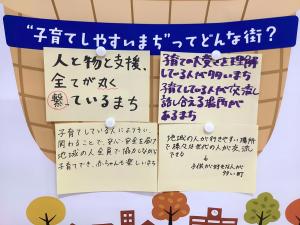 "子育てしやすいまち"ってどんな街？
人と物と支援、
全てが丸く
繋っているまち
子育ての大変さを理解
している人が多いまち
子育てしている人が交流し
話し合える場所が
あるまち
子育てしている人によりそい、
関わることで、安心・安全を届け
地域の人全員で協力しながら
子育てでき、赤ちゃんも楽しいまち
地域の人が行きやすい場所
で様々な世代の人が交流
できる
↓
子供が好きな人が
多い町